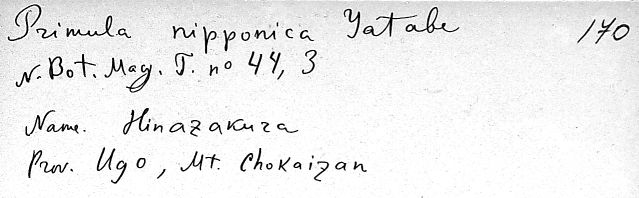 Primula nipponica Yatabe 170
N. Bot. Mag. T. no 44, 3
Name. Hinazakura
Prov. Ugo, Mt. Chokaizan